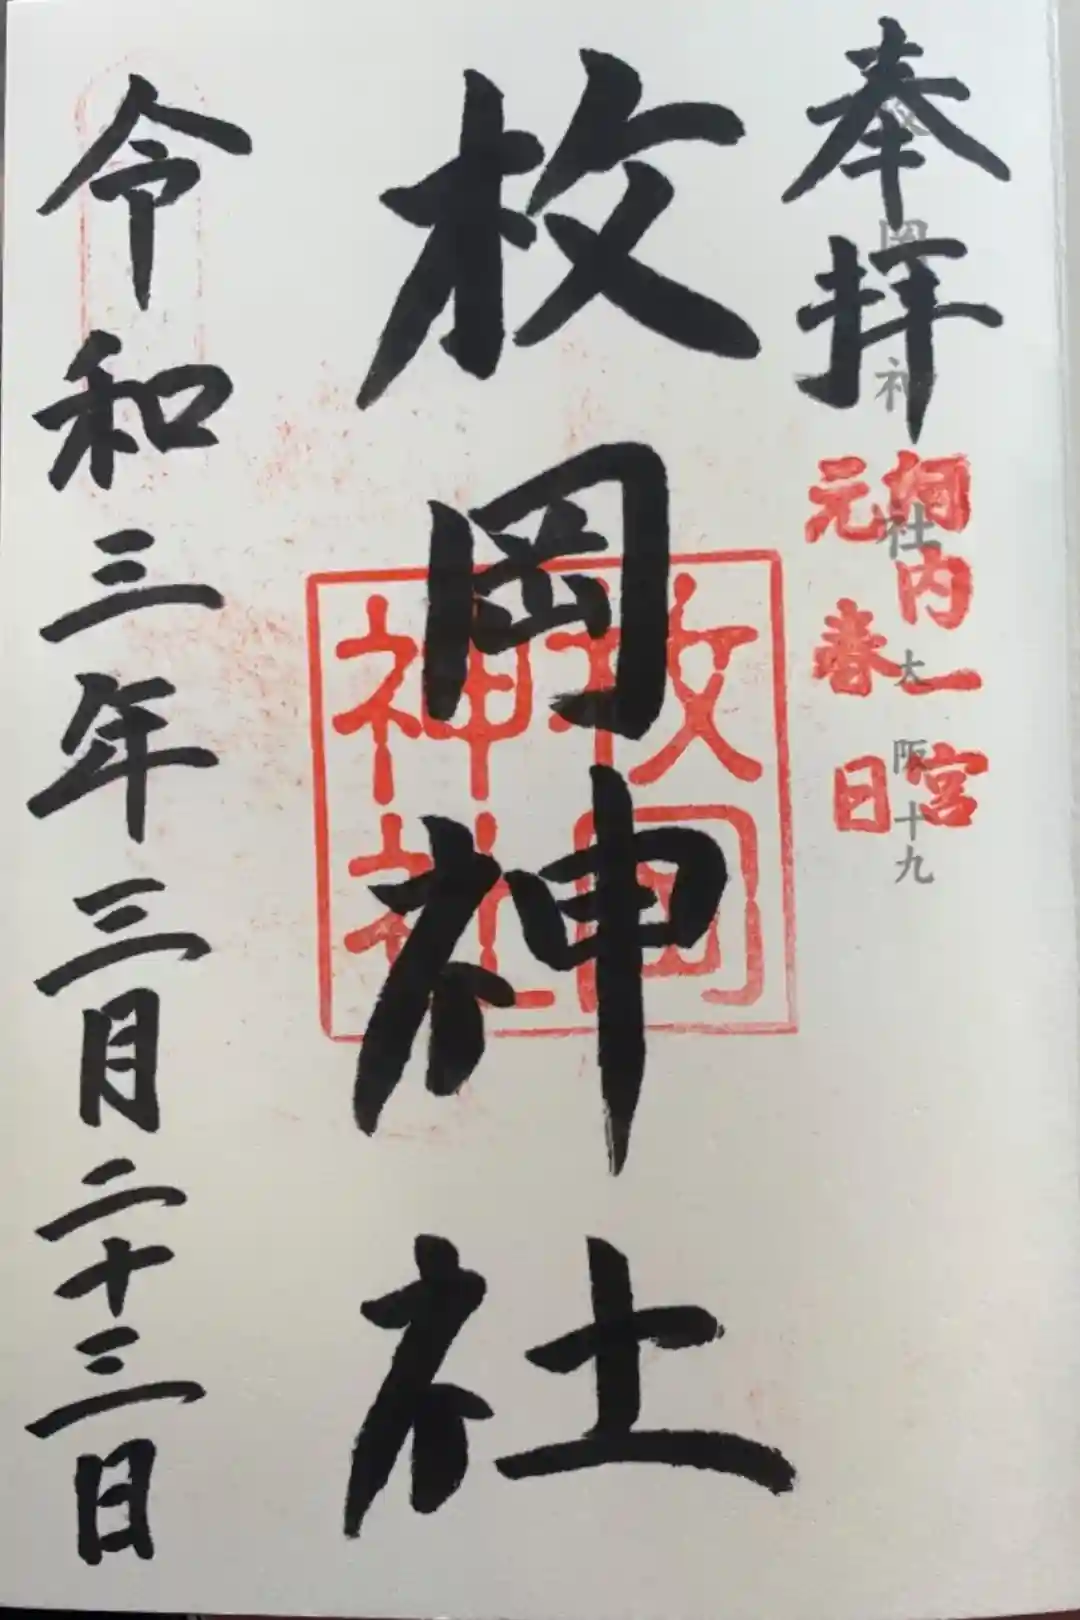 奉拝
枚岡神社 大阪十九
河内一宮
元春日
枚岡神社
枚岡神社
令和三年三月二十三日